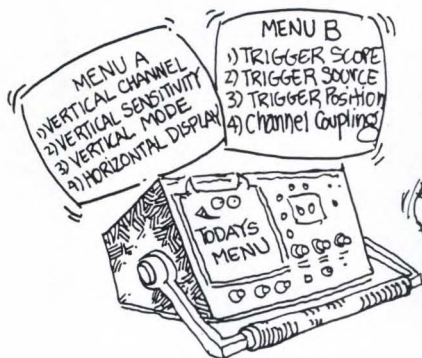 MENU A
1) VERTICAL CHANNEL
2) VERTICAL SENSITIVITY
3) VERTICAL MODE
4) HORIZONTAL DISPLAY
MENU B
1) TRIGGER SCOPE
2) TRIGGER SOURCE
3) TRIGGER Position
4) Channel Coupling
TODAYS
MENU